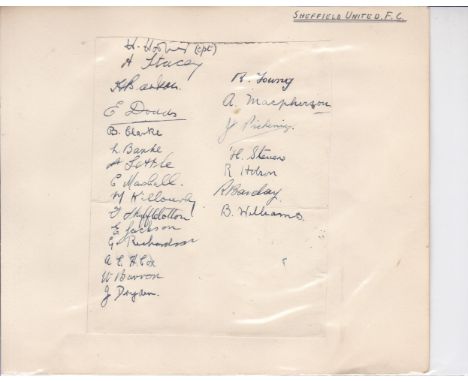 SHEFFIELD UNITED. F.C.
H. Hooper (cpt)
A Stacey
K Barton
E Dodds
B. Clarke
L. Barke
A Settle
E Machell.
N Willoughby
F Shufflebotton
E Jackson
G Richardson
A E H Cox
W Barron
J Dryden.
R. Young
A. Macpherson
J Pickering.
H. Steven
R
R Barclay
B. Williams